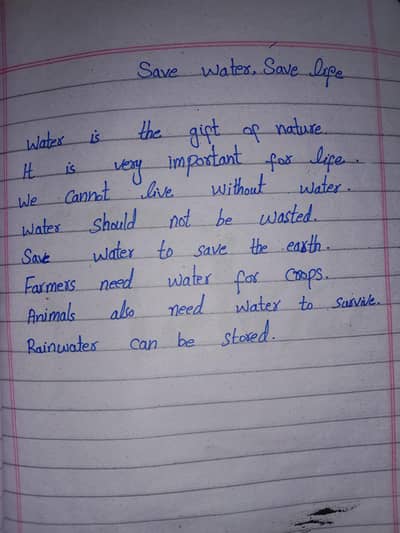 Save water, Save life
Water is the gift of nature
It is very important for life.
We cannot live without water.
Water should not be wasted.
Save water to save the earth.
Farmers need water for crops.
Animals also need water to survive.
Rainwater can be stored.